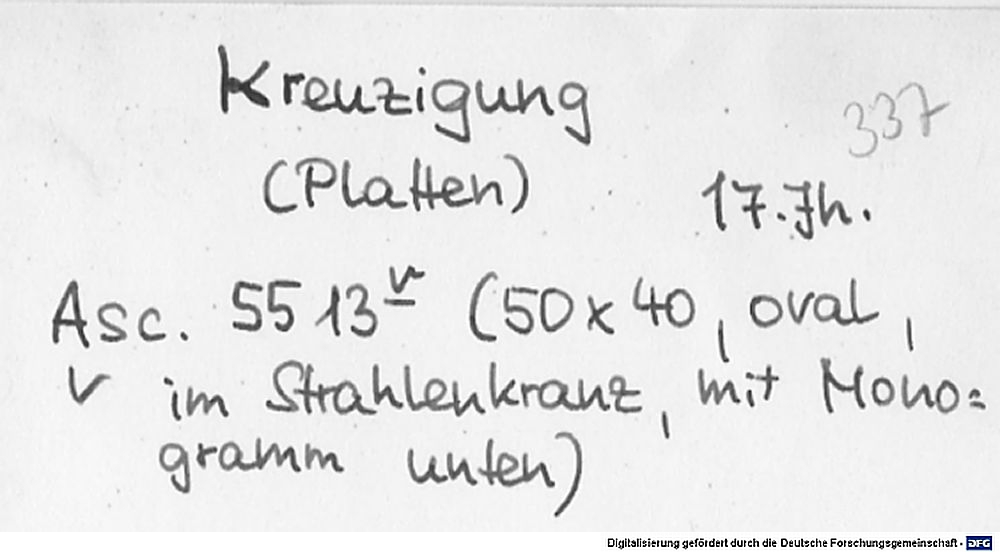 Kreuzigung
337
(Platten)
17. Jh.
Asc. 5513v (50 x 40, oval,
v im Strahlenkranz, mit Mono=
gramm unten)
Digitalisierung gefördert durch die Deutsche Forschungsgemeinschaft - DFG